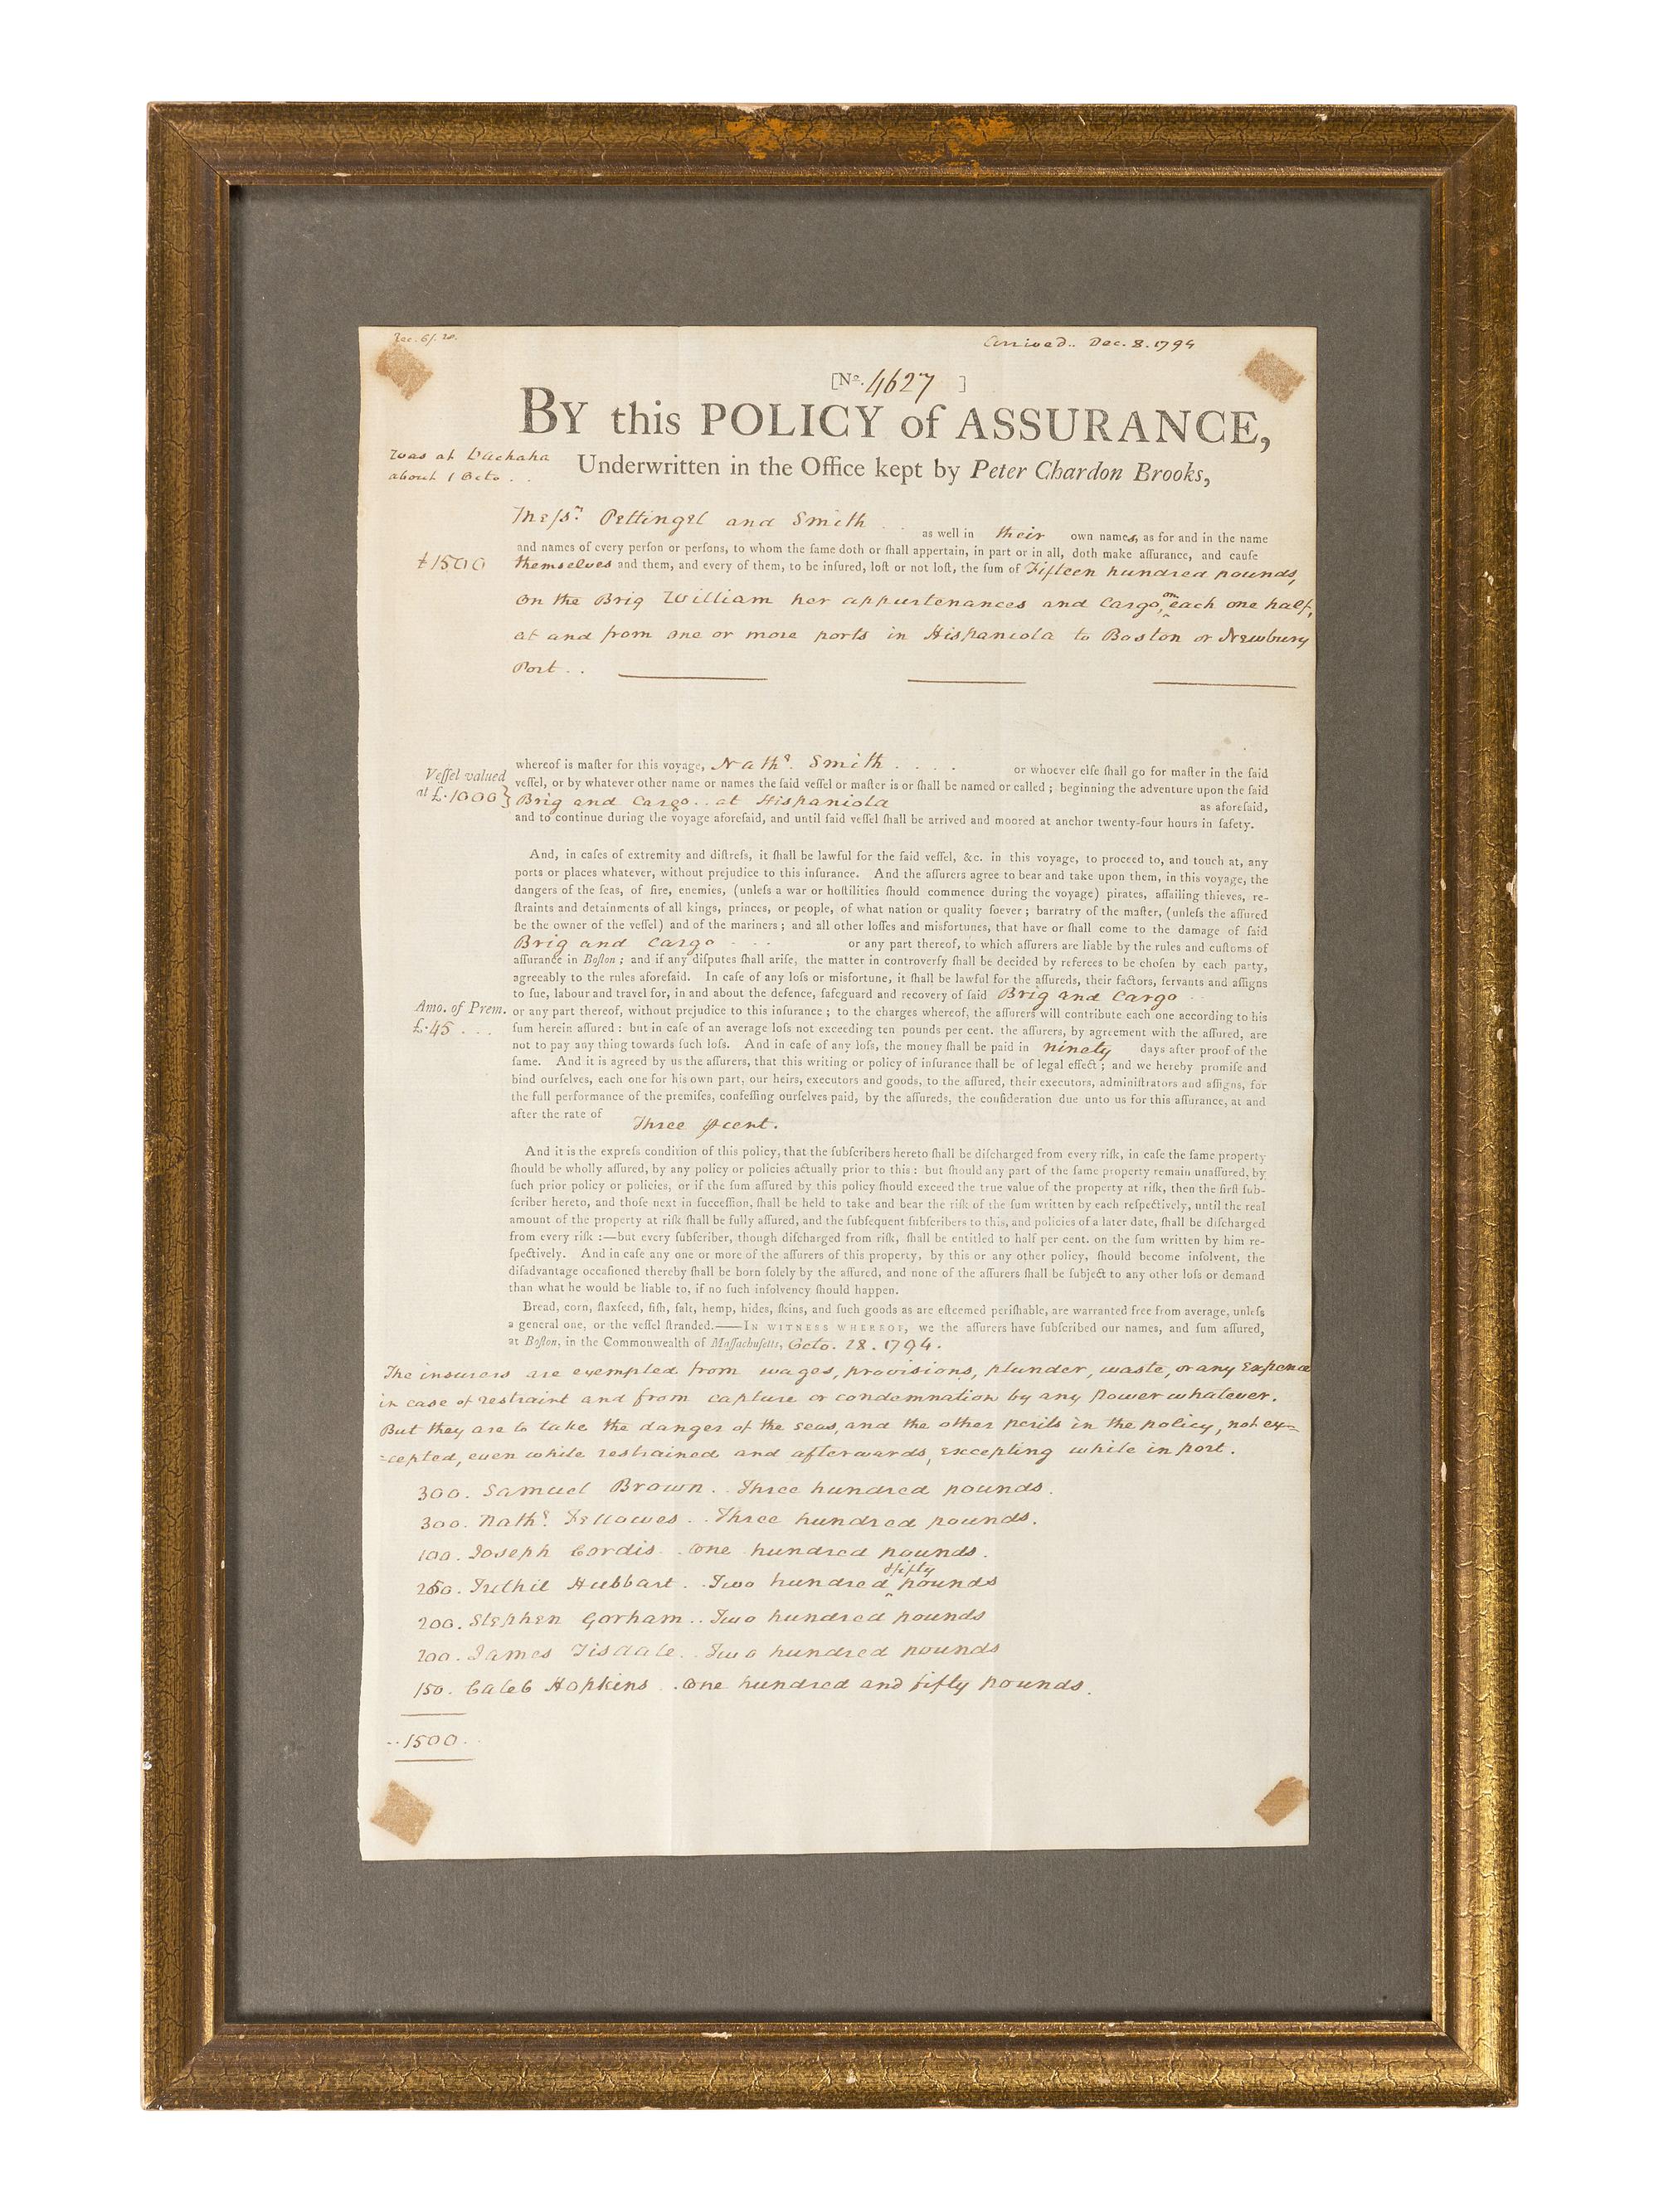 Arrived.. Dec. 8. 1794
[No. 4627 ]
BY this POLICY of ASSURANCE,
was at
about 1 Octo . .
Underwritten in the Office kept by Peter Chardon Brooks,
Meſsrs. Pettingel and Smith . . as well in their own names, as for and in the name
and names of every perſon or perſons, to whom the ſame doth or ſhall appertain, in part or in all, doth make aſſurance, and cauſe
£1500
themselves and them, and every of them, to be inſured, loſt or not loſt, the ſum of Fifteen hundred pounds,
on the Brig William her appurtenances and Cargo, on each one half,
at and from one or more ports in Hispaniola to Boston or Newbury
Port . .
whereof is maſter for this voyage, Nathl. Smith . . . . or whoever elſe ſhall go for maſter in the ſaid
Veſſel valued
at £.1000 }
veſſel, or by whatever other name or names the ſaid veſſel or maſter is or ſhall be named or called ; beginning the adventure upon the ſaid
Brig and Cargo . . at Hispaniola as aforeſaid,
and to continue during the voyage aforeſaid, and until ſaid veſſel ſhall be arrived and moored at anchor twenty-four hours in ſafety.
And, in caſes of extremity and diſtreſs, it ſhall be lawful for the ſaid veſſel, &c. in this voyage, to proceed to, and touch at, any
ports or places whatever, without prejudice to this inſurance. And the aſſurers agree to bear and take upon them, in this voyage, the
dangers of the ſeas, of fire, enemies, (unleſs a war or hoſtilities ſhould commence during the voyage) pirates, aſſailing thieves, re-
ſtraints and detainments of all kings, princes, or people, of what nation or quality ſoever ; barratry of the maſter, (unleſs the aſſured
be the owner of the veſſel) and of the mariners ; and all other loſſes and misfortunes, that have or ſhall come to the damage of ſaid
Brig and Cargo - . . or any part thereof, to which aſſurers are liable by the rules and cuſtoms of
aſſurance in Boſton ; and if any diſputes ſhall ariſe, the matter in controverſy ſhall be decided by referees to be choſen by each party,
agreeably to the rules aforeſaid. In caſe of any loſs or misfortune, it ſhall be lawful for the aſſureds, their factors, ſervants and aſſigns
to ſue, labour and travel for, in and about the defence, ſafeguard and recovery of ſaid Brig and Cargo
Amo. of Prem.
£.45 . . .
or any part thereof, without prejudice to this inſurance ; to the charges whereof, the aſſurers will contribute each one according to his
ſum herein aſſured : but in caſe of an average loſs not exceeding ten pounds per cent. the aſſurers, by agreement with the aſſured, are
not to pay any thing towards ſuch loſs. And in caſe of any loſs, the money ſhall be paid in ninety days after proof of the
ſame. And it is agreed by us the aſſurers, that this writing or policy of inſurance ſhall be of legal effect ; and we hereby promiſe and
bind ourſelves, each one for his own part, our heirs, executors and goods, to the aſſured, their executors, adminiſtrators and aſſigns, for
the full performance of the premiſes, confeſſing ourſelves paid, by the aſſureds, the conſideration due unto us for this aſſurance, at and
after the rate of
Three ⅌ cent.
And it is the expreſs condition of this policy, that the ſubſcribers hereto ſhall be diſcharged from every riſk, in caſe the ſame property
ſhould be wholly aſſured, by any policy or policies actually prior to this : but ſhould any part of the ſame property remain unaſſured, by
ſuch prior policy or policies, or if the ſum aſſured by this policy ſhould exceed the true value of the property at riſk, then the firſt ſub-
ſcriber hereto, and thoſe next in ſucceſſion, ſhall be held to take and bear the riſk of the ſum written by each reſpectively, until the real
amount of the property at riſk ſhall be fully aſſured, and the ſubſequent ſubſcribers to this, and policies of a later date, ſhall be diſcharged
from every riſk :—but every ſubſcriber, though diſcharged from riſk, ſhall be entitled to half per cent. on the ſum written by him re-
ſpectively. And in caſe any one or more of the aſſurers of this property, by this or any other policy, ſhould become inſolvent, the
diſadvantage occaſioned thereby ſhall be born ſolely by the aſſured, and none of the aſſurers ſhall be ſubject to any other loſs or demand
than what he would be liable to, if no ſuch inſolvency ſhould happen.
Bread, corn, flaxſeed, fiſh, ſalt, hemp, hides, ſkins, and ſuch goods as are eſteemed periſhable, are warranted free from average, unleſs
a general one, or the veſſel ſtranded.——IN WITNESS WHEREOF, we the aſſurers have ſubſcribed our names, and ſum aſſured,
at Boſton, in the Commonwealth of Maſſachuſetts, Octo. 28. 1794.
The insurers are exempted from wages, provisions, plunder, waste, or any Expence
in case of restraint and from capture or condemnation by any Power whatever.
But they are to take the danger of the seas, and the other perils in the policy, not ex=
=cepted, even while restrained and afterwards, excepting while in port.
300. Samuel Brown . . Three hundred pounds.
300. Nathl. Fellowes . . Three hundred pounds.
100. Joseph Cordis . . One hundred pounds.
250. Tuthil Hubbart . . Two hundred fifty pounds
200. Stephen Gorham . . Two hundred pounds
200. James Tisdale . . Two hundred pounds
150. Caleb Hopkins . . One hundred and fifty pounds.
1500.